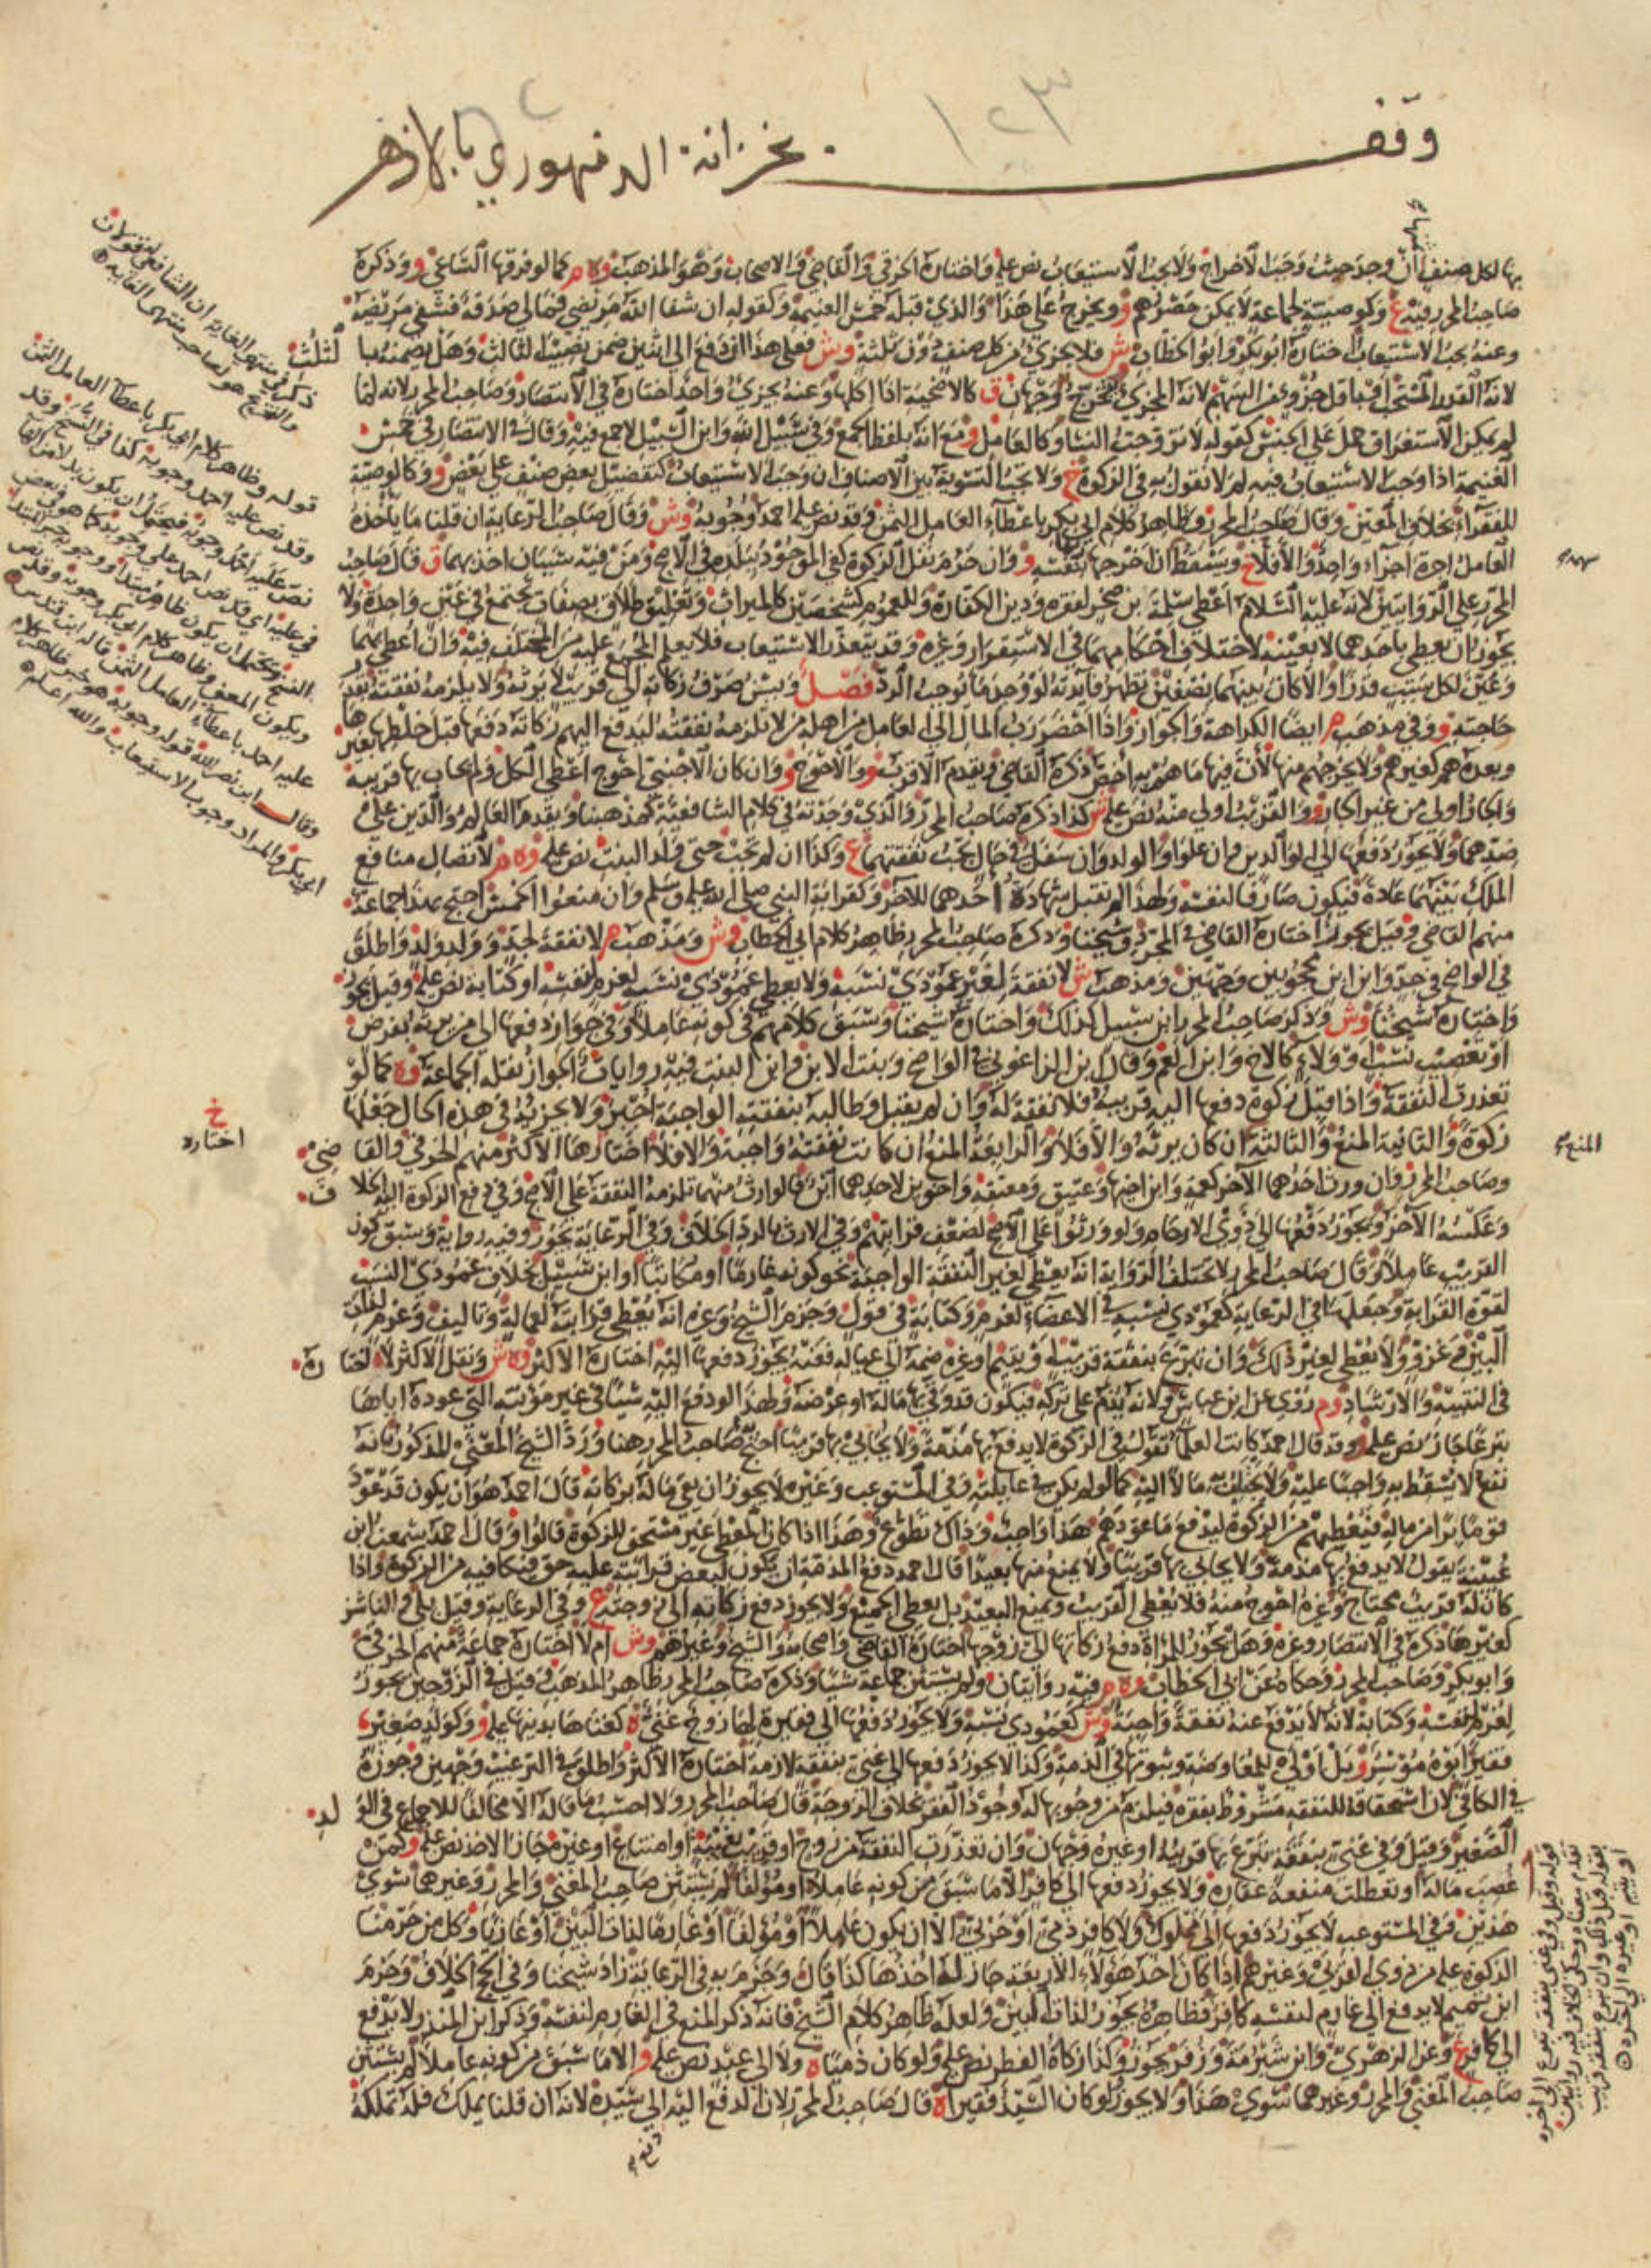 وقف بخزانة الدمنهوري بالازهر
١٢٣
بها لكل صنف ان وجد حيث وجب الاخراج ولا يجب الاستيعاب نص عليه واختاره الخرقي والقاضي والاصحاب وهو المذهب وه م كما لو فرقها الساعي و وذكره
صاحب المحرر فيه ع وكوصيته لجماعة لا يمكن حصرهم و ويخرج على هذا والذي قبله خمس الغنيمة وكقوله ان شفا الله مريضي فمالي صدقة فشفي مريضه
وعنه يجب الاستيعاب اختاره ابو بكر وابو الخطاب وش فلا يجزئ من كل صنف دون ثلثة وش فعلى هذا ان دفع الى اثنين ضمن نصيب الثالث وهل يضمنه بالثلث
لانه القدر المستحب او باقل جزء من السهم لانه المجزئ يخرج وجهان ق كالاضحية اذا اكلها وعنه يجزئ واحد اختاره في الانتصار وصاحب المحرر لانه لما
لم يمكن الاستغراق حمل على الجنس كقوله لا تزوجت النسا وكالعامل و مع انه بلفظ الجمع وفي سبيل الله وابن السبيل لا جمع فيه وقال في الانتصار في خمس
الغنيمة اذا وجب الاستيعاب فيه لم لا نقول به في الزكوة خ ولا تجب التسوية بين الاصناف ان وجب الاستيعاب كتفضيل بعض صنف على بعض و وكالوصية
للفقراء بخلاف المعين وقال صاحب المحرر وظاهر كلام ابي بكر باعطاء العامل الثمن وقد نص عليه احمد وجوبه وش وقال صاحب الرعاية ان قلنا ما يأخذه
العامل اجرة اجزاء واحد والا فلا خ ويسقط ان اخرجها بنفسه و وان حرم نقل الزكوة كفى الموجود ببلده في الاصح ومن فيه سببان اخذ بهما ق قال صاحب
المحرر على الروايتين لانه عليه السلام اعطى سلمة بن صخر لفقره ودين الكفارة وللعموم كشخصين كالميراث وتعليق طلاق بصفات تجتمع في عين واحدة ولا
يجوز ان يعطى باحدهما لا بعينه لاختلاف احكامهما في الاستقرار وغيره وقد يتعذر الاستيعاب فلا يعلم المجمع عليه من المختلف فيه وان اعطي بهما
وعين لكل سبب قدرا والا كان بينهما نصفين تظهر فائدته لو وجد ما يوجب الرد فصل ويسن صرف زكاته الى قريب لا يرثه ولا يلزمه نفقته بقدر
حاجته و وفي مذهب م ايضا الكراهة والجواز واذا احضر رب المال الى العامل من اهله من لا تلزمه نفقته ليدفع اليهم زكاته دفعها قبل خلطها بغيرها
وبعده هم كغيرهم ولا يخرجهم منها لان فيها ما هم به اخص ذكره القاضي ويقدم الاقرب و والاحوج و وان كان الاجنبي احوج اعطى الكل ولم يحاب بها قريبه
والجار اولى من غير الجار و والقريب اولى منه نص عليه ش كذا ذكره صاحب المحرر والذي وجدته في كلام الشافعية كمذهبنا ويقدم العالم والدين على
ضدهما ولا يجوز دفعها الى الوالدين وان علوا والولد وان سفل في حال تجب نفقتهما ع وكذا ان لم تجب حتى ولد البنت نص عليه وه م لاتصال منافع
الملك بينهما عادة فيكون صارفا لنفسه ولهذا لم تقبل شهادة احدهما للآخر وكقرابة النبي صلى الله عليه وسلم وان منعوا الخمس احتج بهذا جماعة
منهم القاضي وقيل يجوز اختاره القاضي في المجرد وشيخنا وذكره صاحب المحرر ظاهر كلام ابي الخطاب وش ومذهب م لا نفقة لجد وولد ولد واطلق
في الواضح في جد وابن ابن محجوبين وجهين ومذهب ش لا نفقة لغير عمودي نسبه ولا يعطي عمودي نسبه لغرم لنفسه او كتابة نص عليه وقيل يجوز
واختاره شيخنا وش وذكر صاحب المحرر ابن سبيل كذلك واختاره شيخنا وسبق كلامهم في كونه عاملا وفي جواز دفعها الى من يرثه بفرض
او تعصيب نسب او ولاء كالاخ وابن العم وقال ابن الزاغوني في الواضح وبنت الابن وابن البنت فيه روايات الجواز نقله الجماعة وه كما لو
تعذرت النفقة واذا قبل زكوة دفعها اليه قريبه فلا نفقة له وان لم يقبل وطالبه بنفقته الواجبة اجبر ولا يجزيه في هذه الحال جعلها
زكوة والثانية المنع والثالثة ان كان يرثه والا فلا والرابعة المنع ان كانت نفقته واجبة والا فلا اختارها الاكثر منهم الخرقي والقاضي
وصاحب المحرر وان ورث احدهما الآخر كعمة وابن اخيها وعتيق ومعتقه واخوين لاحدهما ابن فالوارث منهما تلزمه النفقة على الاصح وفي دفع الزكوة اليه الخلاف
وعكسه الآخر ويجوز دفعها الى ذوي الارحام ولو ورثوا على الاصح لضعف قرابتهم وفي الارث بالرد الخلاف وفي الرعاية تجوز وفيه رواية وسبق كون
القريب عاملا وقال صاحب المحرر لا تختلف الرواية انه يعطى لغير النفقة الواجبة نحو كونه غارما او مكاتبا او ابن سبيل بخلاف عمودي النسب
لقوة القرابة وجعلها في الرعاية كعمودي نسبه في الاعطاء لغرم وكتابة في قول وجزم الشيخ وغيره انه يعطي قرابته لعمالة وتاليف وغرم لذات
البين وغزو ولا يعطى لغير ذلك وان تبرع بنفقة قريب او يتيم او غيره ضمه الى عياله فعنه يجوز دفعها اليه اختاره الاكثر وه ش ونقل الاكثر لا اختاره
في التنبيه والارشاد وم روي عن ابن عباس ولانه يقدم على تركه فيكون قد وقى بها ماله او عرضه ولهذا لو دفع اليه شيئا في غير مؤنته التي عوده اياها
تبرعا جاز نص عليه وقد قال احمد كانت العلماء تقول في الزكوة لا يدفع بها مذمة ولا يحابي بها قريبا احتج صاحب المحرر بهذا ورد الشيخ المعنى المذكور بانه
نفع لا يسقط به واجبا عليه ولا يجتلب به مالا اليه كما لو لم يكن في عايلته وفي المستوعب وغيره لا يجوز ان يقي ماله بزكاته قال احمد هو ان يكون قد عود
قوما برا من ماله فيعطيهم من الزكوة ليدفع ما عودهم هذا واجب وذاك تطوع وهذا اذا كان المعطى غير مستحق للزكوة قالوا وقال احمد سمعت ابن
عيينة يقول لا يدفع بها مذمة ولا يحابي بها قريبا ولا يمنع منها بعيدا قال احمد دفع المذمة ان يكون لبعض قرابته عليه حق فيكافيه من الزكوة واذا
كان له قريب محتاج وغيره احوج منه فلا يعطى القريب ويمنع البعيد بل يعطي الجميع ولا يجوز دفع زكاته الى زوجته ع وفي الرعاية وقيل بلى والناشز
كغيرها ذكره في الانتصار وغيره وهل يجوز للمراة دفع زكاتها الى زوجها اختاره القاضي واصحابه والشيخ وغيرهم وش ام لا اختاره جماعة منهم الخرقي
وابو بكر وصاحب المحرر وحكاه عن ابي الخطاب وه م فيه روايتان ولم يستثن جماعة شيئا وذكره صاحب المحرر ظاهر المذهب وقيل في الزوجين يجوز
لغرم لنفسه وكتابة لانه لا يدفع عنه نفقة واجبة وش كعمودي نسبه ولا يجوز دفعها الى فقيرة لها زوج غني ه كغناها بدينها عليه و وكولد صغير
فقير ابوه موسر و بل اولى للمعاوضة وثبوتها في الذمة وكذا لا يجوز دفعها الى غني بنفقة لازمة اختاره الاكثر واطلق في الترغيب وجهين وجوزه
في الكافي لان استحقاقه للنفقة مشروط بفقره فيلزم من وجوبها له وجود الفقر بخلاف الزوجة قال صاحب المحرر ولا احسب ما قاله الا مخالفا للاجماع في الولد
الصغير وقيل وفي غني بنفقة تبرع بها قريبه او غيره وجهان وان تعذرت النفقة من زوج او قريب بغيبة او امتناع او غيره جاز الاخذ نص عليه و كمن
غصب ماله او تعطلت منفعة عقاره ولا يجوز دفعها الى كافر الا ما سبق من كونه عاملا او مؤلفا لم يستثن صاحب المغني والمحرر وغيرهما سوى
هذين وفي المستوعب لا يجوز دفعها الى مملوك ولا كافر ذمي او حربي الا ان يكون عاملا او مؤلفا او غارما لذات البين او غازيا وكل من حرمنا
الزكوة عليه من ذوي القربى وغيرهم اذا كان احد هؤلاء الاربعة جاز له اخذها كذا قال وجزم به في الرعاية زاد شيخنا وفي الحج الخلاف وجزم
ابن تميم لا يدفع الى غارم لنفسه كافر فظاهره يجوز لذات البين ولعله ظاهر كلام الشيخ فانه ذكر المنع في الغارم لنفسه وذكر ابن المنذر لا يدفع
الى كافر ع وعن الزهري وابن شبرمة وزفر يجوز وكذا زكاة الفطر نص عليه ولو كان ذميا ه ولا الى عبد نص عليه و الا ما سبق من كونه عاملا لم يستثن
صاحب المغني والمحرر وغيرهما سوى هذا ولا يجوز لو كان السيد فقيرا ه قال صاحب المحرر لان الدفع اليه الى سيده لانه ان قلنا يملك فله تملكه
ذكر في منتهى الغاية ان الشافعي له قولان
قوله وظاهر كلام ابي بكر باعطاء العامل الثمن
وقد نص عليه احمد وجوبه كذا في النسخ وقد
وقال ابن نصر الله قوله وجوبه هو خبر ظاهر كلام
ابي بكر والمراد وجوب الاستيعاب والله اعلم
خ
اختاره
سهمه
المنع
قوله وقيل وفي غني بنفقة تبرع الى اخره